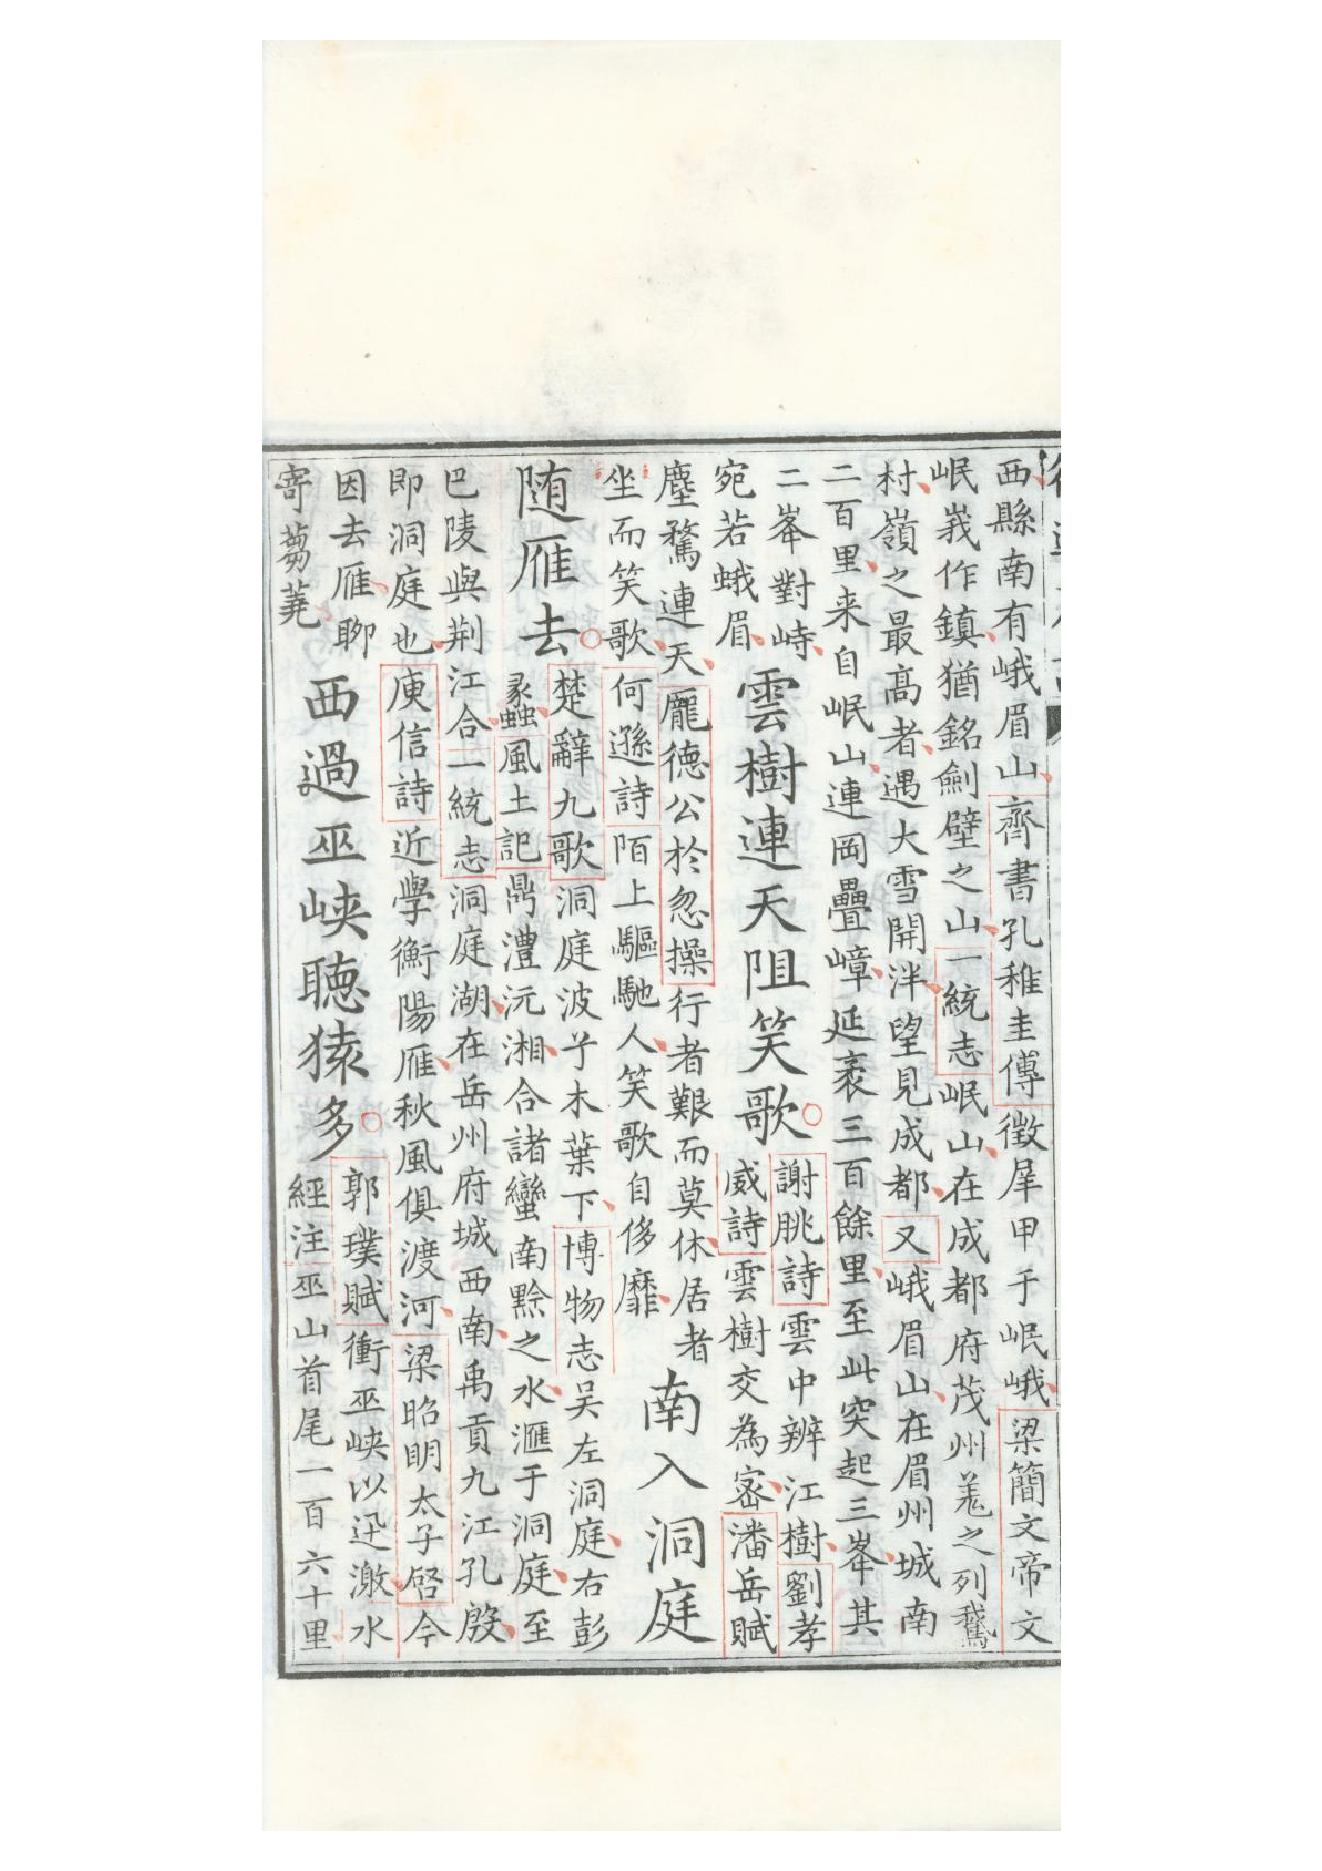 西縣南有峨眉山齊書孔稚圭傅徵犀甲于岷峨梁簡文帝文
岷峩作鎮猶銘劍壁之山一統志岷山在成都府茂州羗之列鵞
村嶺之最高者遇大雪開泮望見成都又峨眉山在眉州城南
二百里来自岷山連岡疊嶂延袤三百餘里至此突起三峯其
二峯對峙
宛若蛾眉
雲樹連天阻笑歌
謝朓詩雲中辨江樹劉孝
威詩雲樹交為宻潘岳賦
塵騖連天龐德公於忽操行者艱而莫休居者
坐而笑歌何遜詩陌上驅馳人笑歌自侈靡
南入洞庭
随雁去
楚辭九歌洞庭波兮木葉下博物志吴左洞庭右彭
蠡風土記鼎澧沅湘合諸蠻南黔之水滙于洞庭至
巴陵與荆江合一統志洞庭湖在岳州府城西南禹貢九江孔殷
即洞庭也庾信詩近學衡陽雁秋風俱渡河梁昭明太子啓今
因去雁聊
寄蒭荛
西過巫峽聽猿多
郭璞賦衝巫峽以迅激水
經注巫山首尾一百六十里